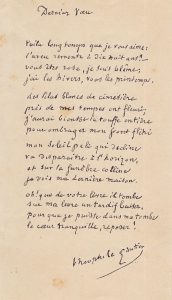 Dernier Vœu
Voilà longtemps que je vous aime :
l'aveu remonte à dix-huit ans !
vous êtes rose, je suis blême ;
j'ai les hivers, vous les printemps.
des lilas blancs de cimetière
près de mes tempes ont fleuri ;
j'aurai bientôt la touffe entière
pour ombrager mon front flétri
mon soleil pâle qui décline
va disparaître à l'horizon,
et sur la funèbre colline
je vois ma dernière maison.
oh ! que de votre lèvre il tombe
sur ma lèvre un tardif baiser,
pour que je puisse dans ma tombe
le cœur tranquille, reposer !
Théophile Gautier